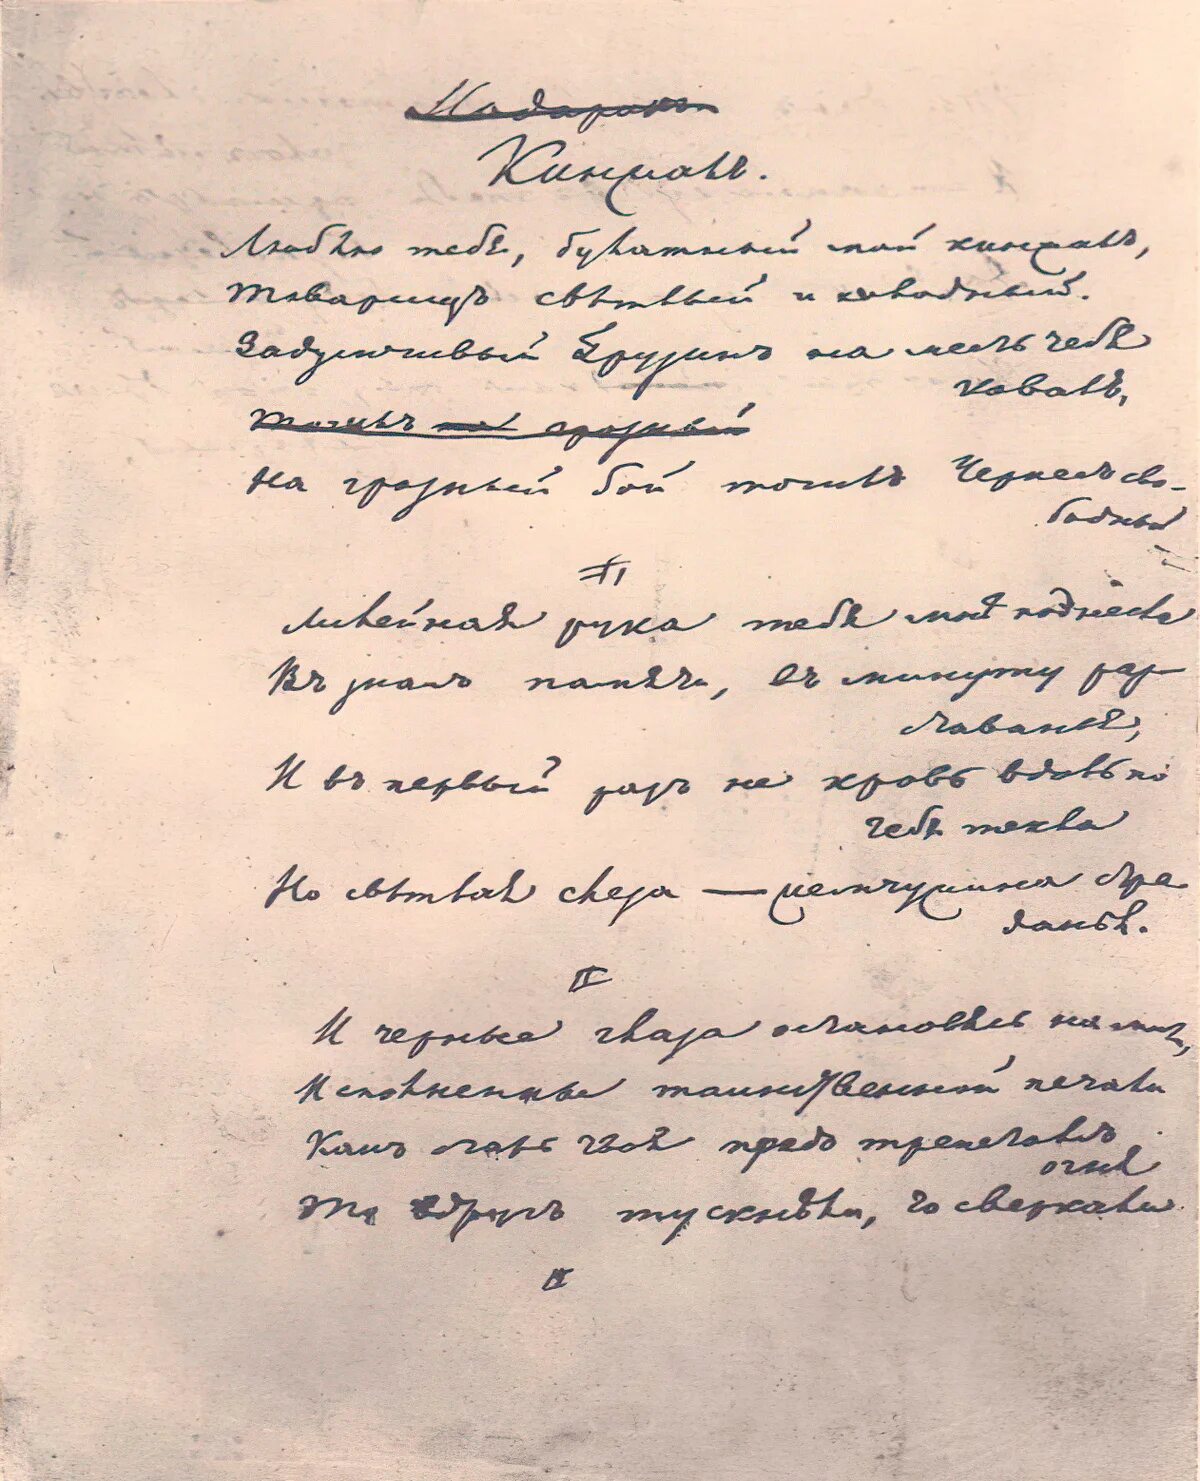 Подарокъ
Кинжалъ.
Люблю тебя, булатный мой кинжалъ,
Товарищъ свѣтлый и холодный.
Задумчивый Грузинъ на месть тебя
ковалъ,
Точилъ на грозный
На грозный бой точилъ Черкесъ сво-
бодный
II
Лилейная рука тебя мнѣ поднесла
Въ знакъ памяти, въ минуту раз-
ставанья,
И въ первый разъ не кровь вдоль по
тебѣ текла
Но свѣтлая слеза — жемчужина стра-
данья.
II
И черные глаза остановясь на мнѣ,
Исполнены таинственной печали
Какъ сталь твоя предъ трепетномъ
огнѣ
То вдругъ тускнѣли, то сверкали